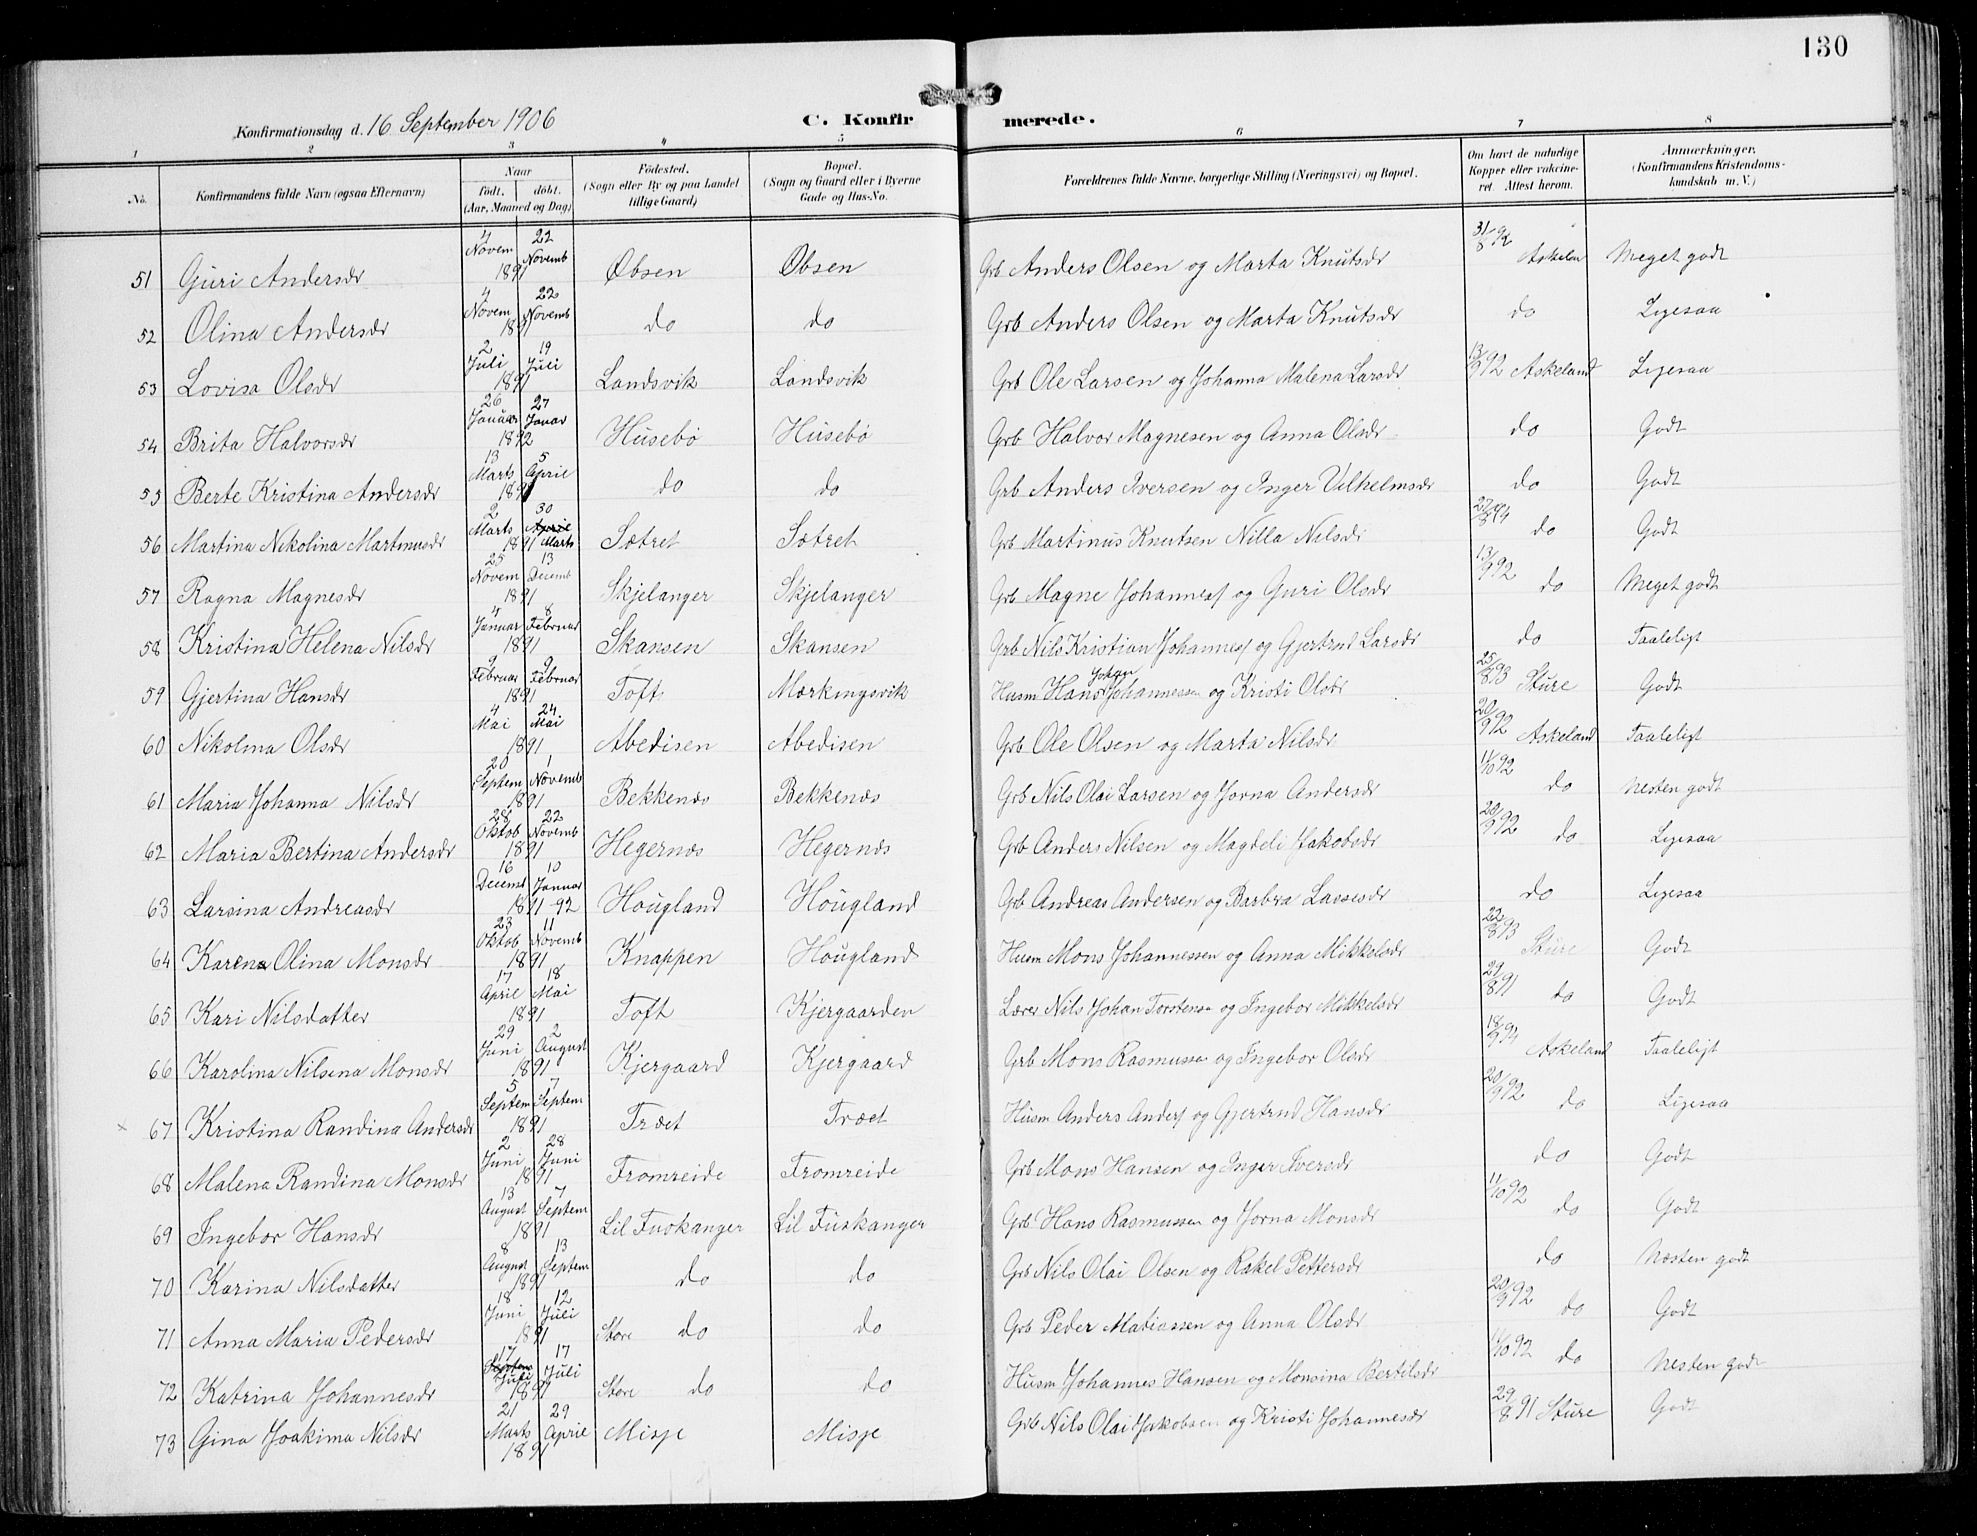 130
Konfirmationsdag d. 16 September 1906
C. Konfirmerede.
1 2 3 4 5 6 7 8
No. Konfirmandens fulde Navn (ogsaa Efternavn) Naar født. døbt. (Aar, Maaned og Dag) Fødested. (Sogn eller By og paa Landet tillige Gaard) Bopæl. (Sogn og Gaard eller i Byerne Gade og Hus-No. Forældrenes fulde Navne, borgerlige Stilling (Næringsvei) og Bopæl. Om havt de naturlige Kopper eller vakcineret. Attest herom. Anmærkninger. (Konfirmandens Kristendomskundskab m. V.)
51 Guri Andersdr 4 Novem 22 Novemb 1891 Øbsen Øbsen Grb Anders Olsen og Marta Knutsdr 31/8 92 Askelan Meget godt
52 Olina Andersdr 4 Novem 22 Novemb 1891 do do Grb Anders Olsen og Marta Knutsdr do Ligesaa
53 Lovisa Olsdr 2 Juli 19 Juli 1891 Landsvik Landsvik Grb Ole Larsen og Johanna Malena Larsdr 13/9 92 Askeland Ligesaa
54 Brita Halvorsdr 26 Januar 27 Januar 1892 Husebø Husebø Grb Halvor Magnesen og Anna Olsdr do Godt
55 Berte Kristina Andersdr 13 Marts 5 April 1891 do do Grb Anders Iversen og Inger Vilhelmsdr do Godt
56 Martina Nikolina Martinusdr 2 Marts 30 April Marts 1891 Sætret Sætret Grb Martinus Knutsen Nilla Nilsdr 27/8 94 do Godt
57 Ragna Magnesdr 25 Novem 13 Decemb 1891 Skjelanger Skjelanger Grb Magne Johannes og Guri Olsdr 13/9 92 do Meget godt
58 Kristina Helena Nilsdr 4 Januar 8 Februar 1891 Skansen Skansen Grb Nils Kristian Johannes og Gjertrud Larsdr do Taaleligt
59 Gjertina Hansdr 9 Februar 9 Februar 1891 Toft Mærkingsvik Husm Hans Johan Johannessen og Kristi Olsdr 25/8 93 Sture Godt
60 Nikolina Olsdr 4 Mai 24 Mai 1891 Abedisen Abedisen Grb Ole Olsen og Marta Nilsdr 20/9 92 Askeland Taaleligt
61 Maria Johanna Nilsdr 20 Septem 1 Novemb 1891 Bekkenæs Bekkenæs Grb Nils Olai Larsen og Jorna Andersdr 11/10 92 do Nesten godt
62 Maria Bertina Andersdr 28 Oktob 22 Novemb 1891 Hegernæs Hegernæs Grb Anders Nilsen og Magdeli Jakobsdr 20/9 92 do Ligesaa
63 Larsina Andreasdr 16 Decemb 10 Januar 1891-92 Hougland Hougland Grb Andreas Andersen og Barbra Lassesdr do Ligesaa
64 Karena Olina Monsdr 23 Oktob 11 Novemb 1891 Knappen Hougland Husm Mons Johannessen og Anna Mikkelsdr 22/8 93 Sture Godt
65 Kari Nilsdatter 17 April 18 Mai 1891 Toft Kjergaarden Lærer Nils Johan Torstensen og Ingebor Mikkelsdr 29/8 91 do Godt
66 Karolina Nilsena Monsdr 29 Juni 2 August 1891 Kjergaard Kjergaard Grb Mons Rasmussen og Ingebor Olsdr 18/9 94 Askeland Taaleligt
67 Kristina Randina Andersdr 5 Septem 7 Septem 1891 Træet Træet Husm Anders Anders og Gjertrud Hansdr 20/9 92 do Ligesaa
68 Malena Randina Monsdr 2 Juni 28 Juni 1891 Fromreide Fromreide Grb Mons Hansen og Inger Iversdr do Godt
69 Ingebor Hansdr 13 August 7 Septem 1891 Lil Fuskanger Lil Fuskanger Grb Hans Rasmussen og Jorna Monsdr 11/10 92 do Godt
70 Karina Nilsdatter 8 August 13 Septem 1891 do do Grb Nils Olai Olsen og Rakel Pettersdr do Næsten godt
71 Anna Maria Pedersdr 18 Juni 12 Juli 1891 Store do do Grb Peder Matiassen og Anna Olsdr 20/9 92 do Godt
72 Katrina Johannesdr 17 Septem Juli 17 Juli 1891 Store do do Husm Johannes Hansen og Monsina Bertilsdr 11/10 92 do Nesten godt
73 Gina Joakima Nilsdr 21 Marts 29 April 1891 Misje Misje Grb Nils Olai Jakobsen og Kristi Johannesdr 29/8 91 Sture Godt